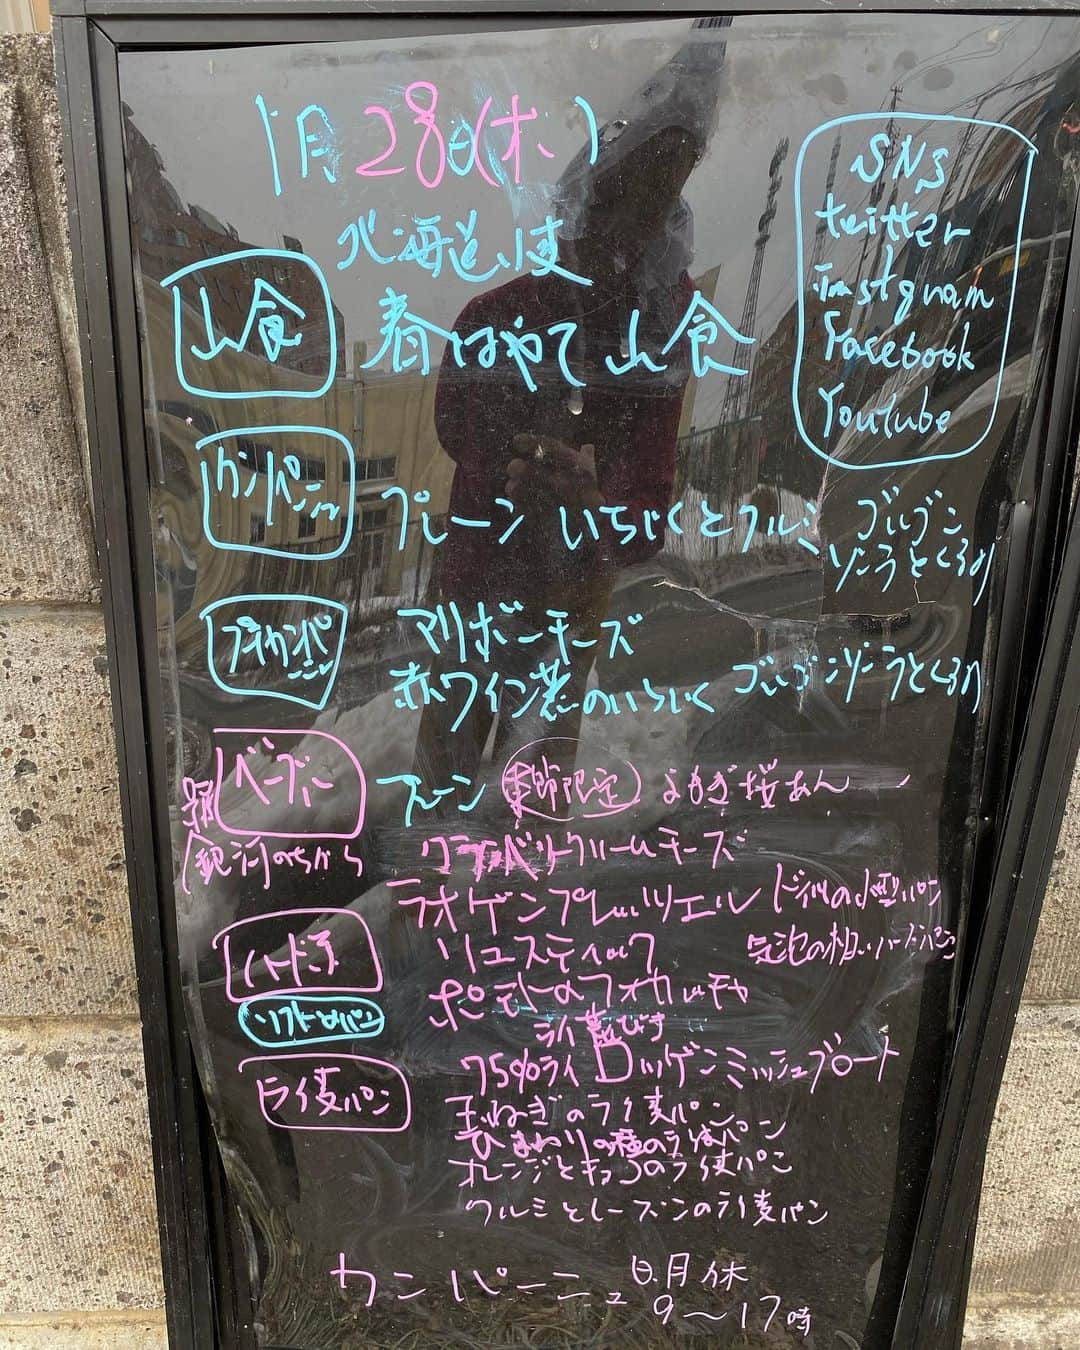 1月28日(木)
SNS
twitter
instgram
Facebook
Youtube
北海道小麦
山食
春はやて山食
カンパーニュ
プレーン いちじくとクルミ ゴルゴン
ゾーラとくるみ
プチカンパーニュ
マリボーチーズ
赤ワイン煮のいちじく ゴルゴンゾーラとくるみ
ベーグル
プレーン 季節限定 よもぎ桜あん
銀河のちから
クランベリークリームチーズ
ラオゲンプレッツェル ドイツの小型パン
ハード系
リュスティック
ソフトなパン
ポテトのフォカッチャ
ライ麦パン
75%ライ ロッゲンミッシュブロート
玉ねぎのライ麦パン
ひまわりの種のライ麦パン
オレンジとチョコのライ麦パン
クルミとレーズンのライ麦パン
カンパーニュ 日.月休
9〜17時